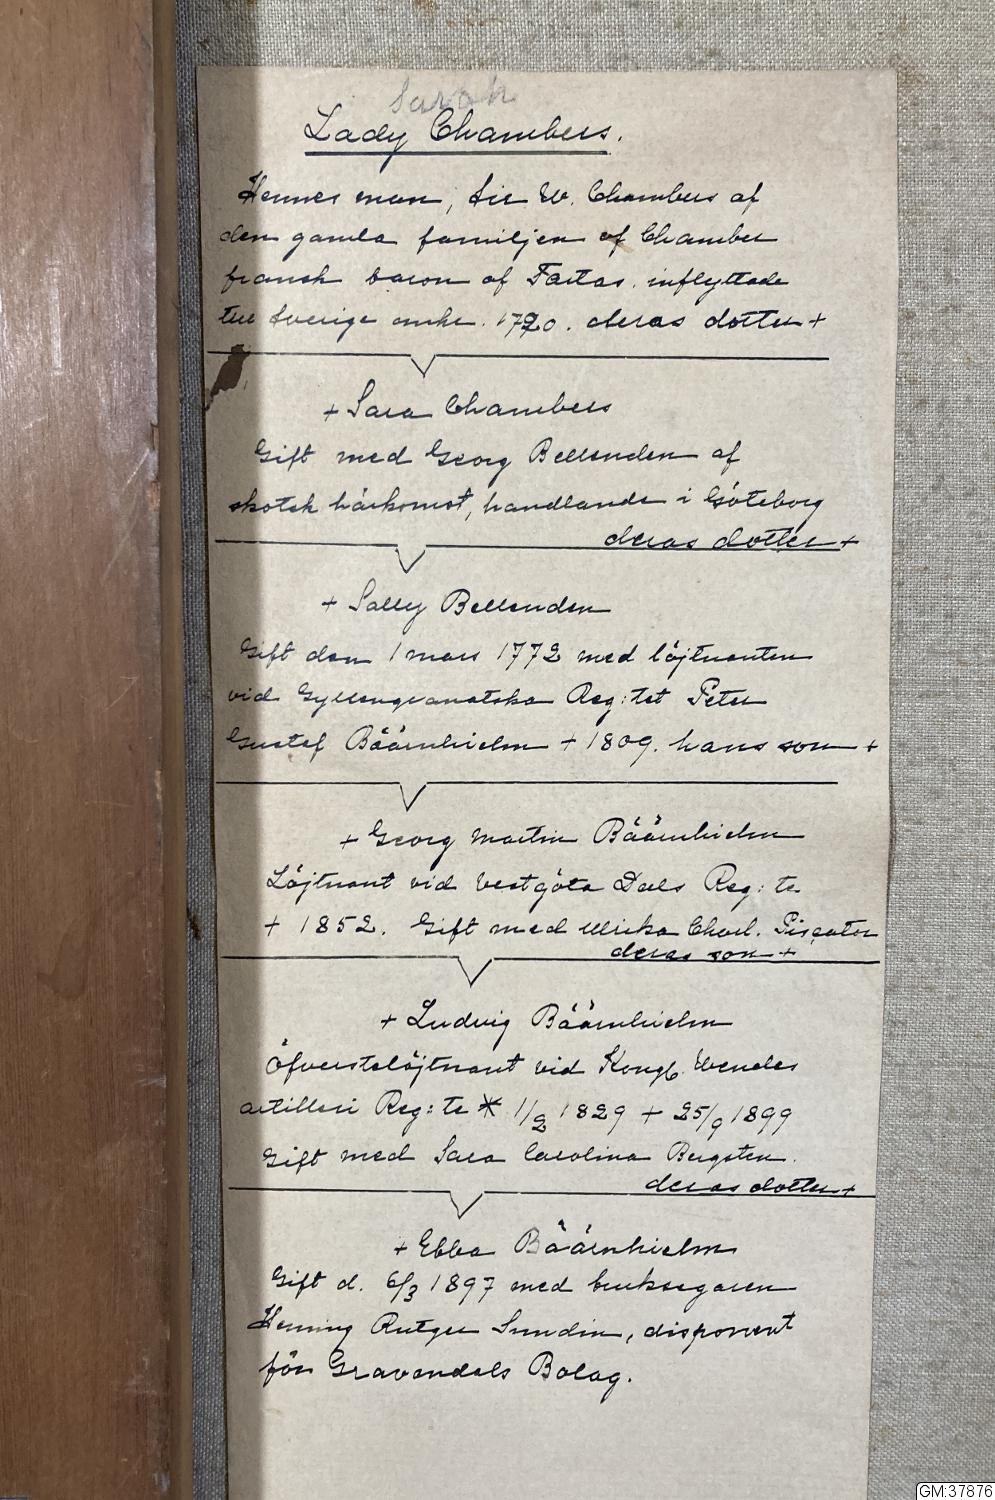 Sarah
Lady Chambers.
Hennes man, Sir W. Chambers af
den gamla familjen of Chamber
fransk baron of Tartas. inflyttade
till Sverige omkr. 1720. deras dotter +
+ Sara Chambers
Gift med Georg Bellenden af
skotsk härkomst, handlande i Göteborg
deras dotter +
+ Sally Bellenden
Gift den 1 mars 1772 med löjtnanten
vid Gyllengranatska Reg:tet Peter
Gustaf Bäärnhielm + 1809. hans son +
+ Georg Martin Bäärnhielm
Löjtnant vid Vestgöta Dals Reg:te
+ 1852. Gift med Ulrika Charl. Piscator
deras son +
+ Ludvig Bäärnhielm
Öfverstelöjtnant vid Kongl. Wendes
artilleri Reg:te * 1/2 1829 + 25/9 1899
Gift med Sara Carolina Bergsten.
deras dotter +
+ Ebba Bäärnhielm
Gift d. 6/3 1897 med bruksegaren
Henning Rutger Sundin, disponent
för Gravendals Bolag.
GM:37876